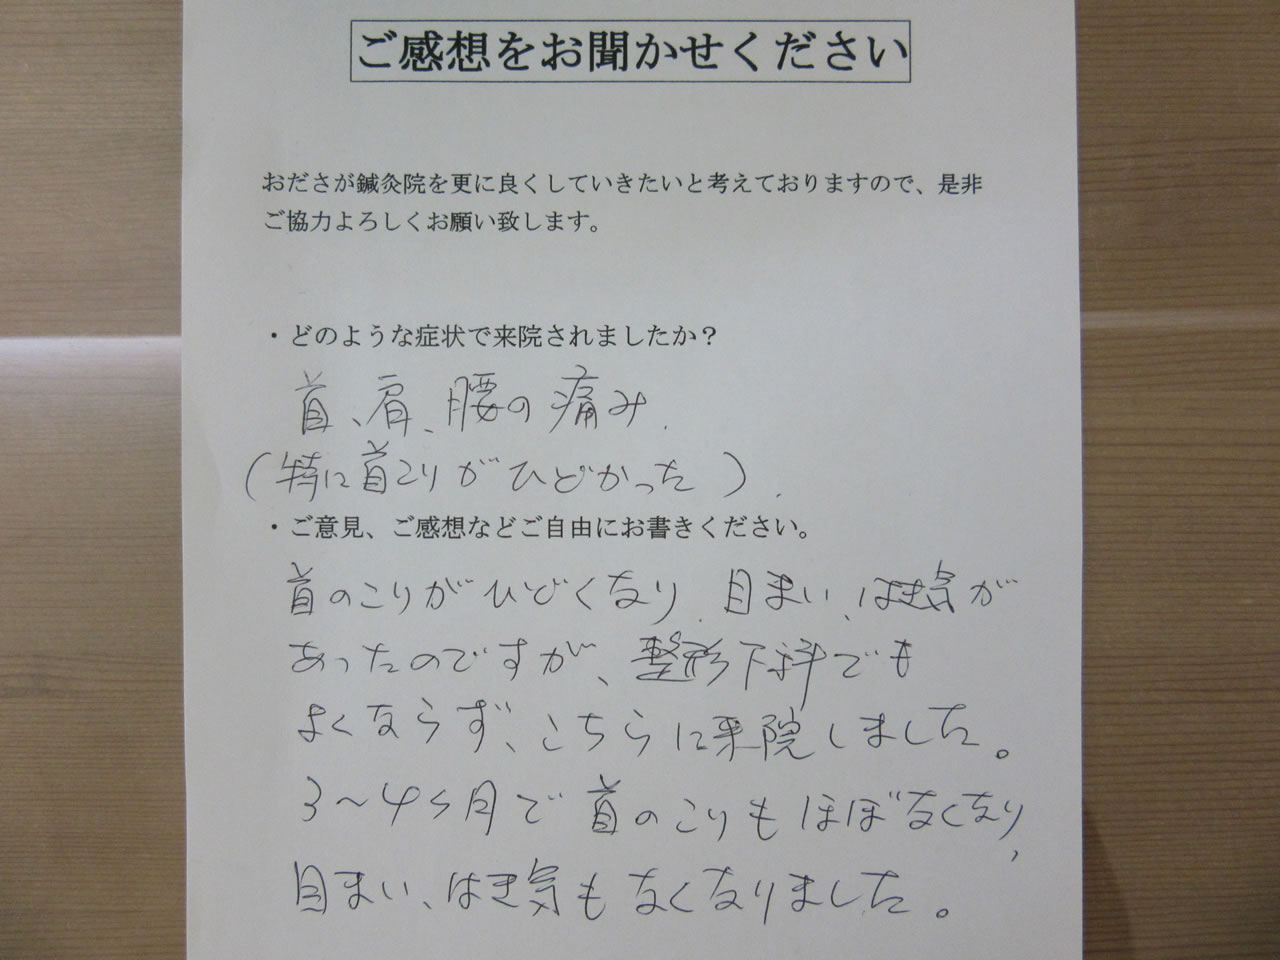 ご感想をお聞かせください
おださが鍼灸院を更に良くしていきたいと考えておりますので、是非
ご協力よろしくお願い致します。
・どのような症状で来院されましたか？
首、肩、腰の痛み.
(特に首こりがひどかった).
・ご意見、ご感想などご自由にお書きください。
首のこりがひどくなり、目まい、はき気が
あったのですが、整形下科でも
よくならず、こちらに来院しました。
3～4ヶ月で首のこりもほぼなくなり,
目まい、はき気もなくなりました。